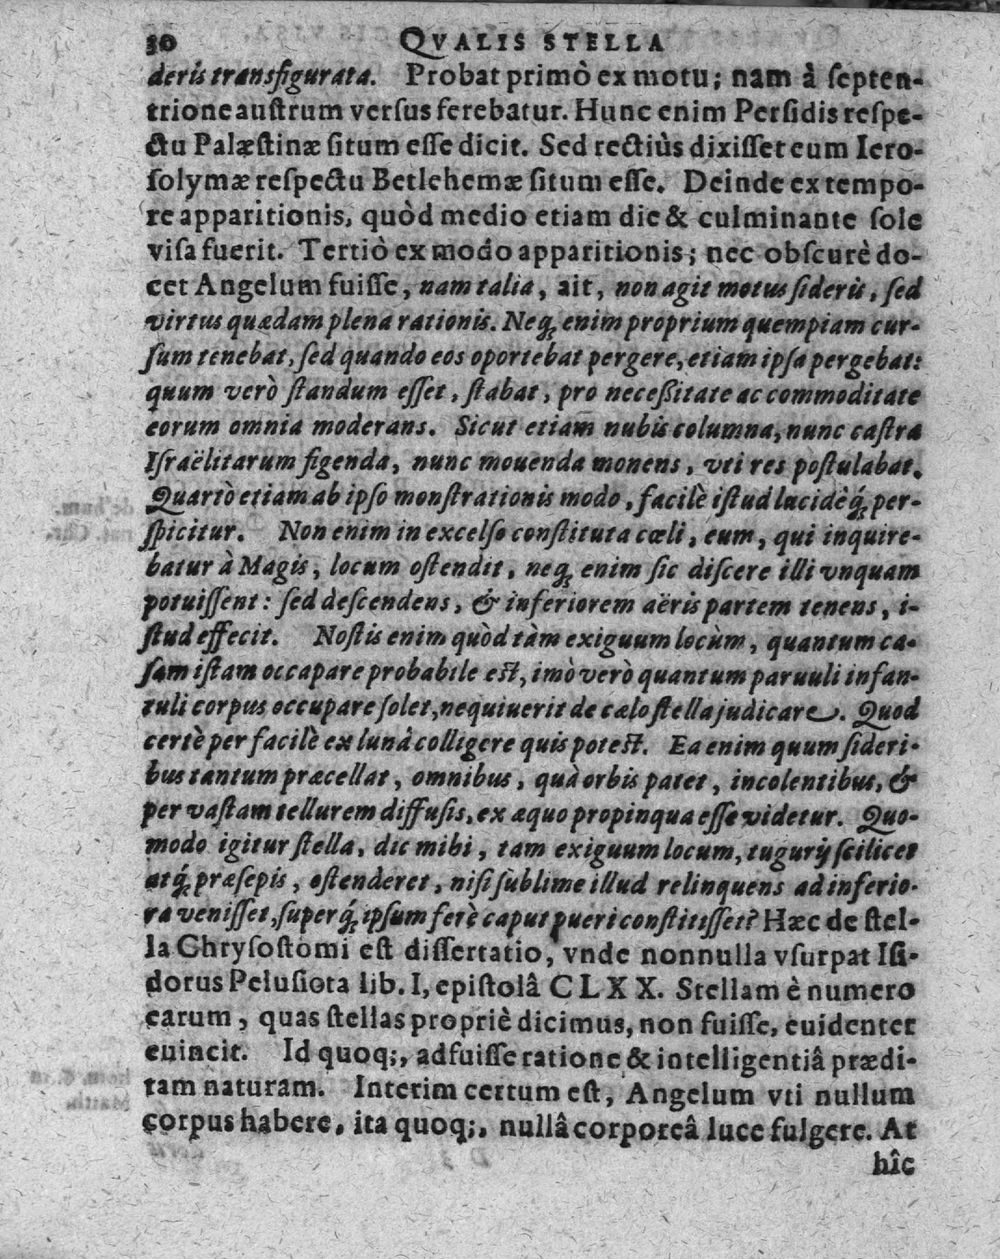 30 QVALIS STELLA
deris transfigurata. Probat primò ex motu; nam à septen-
trione austrum versus ferebatur. Hunc enim Persidis respe-
ctu Palæstinæ situm esse dicit. Sed rectiùs dixisset eum Iero-
solymæ respectu Betlehemæ situm esse. Deinde ex tempo-
re apparitionis, quòd medio etiam die & culminante sole
visa fuerit. Tertiò ex modo apparitionis; nec obscurè do-
cet Angelum fuisse, nam talia, ait, non agit motus sideris, sed
virtus quædam plena rationis. Neq; enim proprium quempiam cur-
sum tenebat, sed quando eos oportebat pergere, etiam ipsa pergebat:
quum verò standum esset, stabat, pro necessitate ac commoditate
eorum omnia moderans. Sicut etiam nubis columna, nunc castra
Israëlitarum figenda, nunc mouenda monens, vti res postulabat.
Quartò etiam ab ipso monstrationis modo, facilè istud lucidèq́; per-
spicitur. Non enim in excelso constituta cœli, eum, qui inquire-
batur à Magis, locum ostendit, neq; enim sic discere illi vnquam
potuissent: sed descendens, & inferiorem aëris partem tenens, i-
stud effecit. Nostis enim quòd tàm exiguum locùm, quantum ca-
sam istam occapare probabile est, imò verò quantum paruuli infan-
tuli corpus occupare solet, nequiuerit de cælo stella judicare. Quod
certè per facilè ex lunâ colligere quis potest. Ea enim quum sideri-
bus tantum præcellat, omnibus, quà orbis patet, incolentibus, &
per vastam tellurem diffusis, ex æquo propinqua esse videtur. Quo-
modo igitur stella, dic mihi, tam exiguum locum, tugurij scilicet
atq́; præsepis, ostenderet, nisi sublime illud relinquens ad inferio-
ra venisset, superq́; ipsum ferè caput pueri constitisset? Hæc de stel-
la Chrysostomi est dissertatio, vnde nonnulla vsurpat Isi-
dorus Pelusiota lib. I, epistolâ CLXX. Stellam è numero
earum, quas stellas propriè dicimus, non fuisse, euidenter
euincit. Id quoq;, adfuisse ratione & intelligentiâ prædi-
tam naturam. Interim certum est, Angelum vti nullum
corpus habere, ita quoq;, nullâ corporeâ luce fulgere. At
hîc